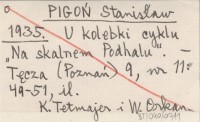 PIGOŃ Stanisław
1935. U kolebki cyklu
„Na skalnem Podhalu". –
Tęcza (Poznań) 9, nr 11 s
49-51, il.
K. Tetmajer i W. Orkan.